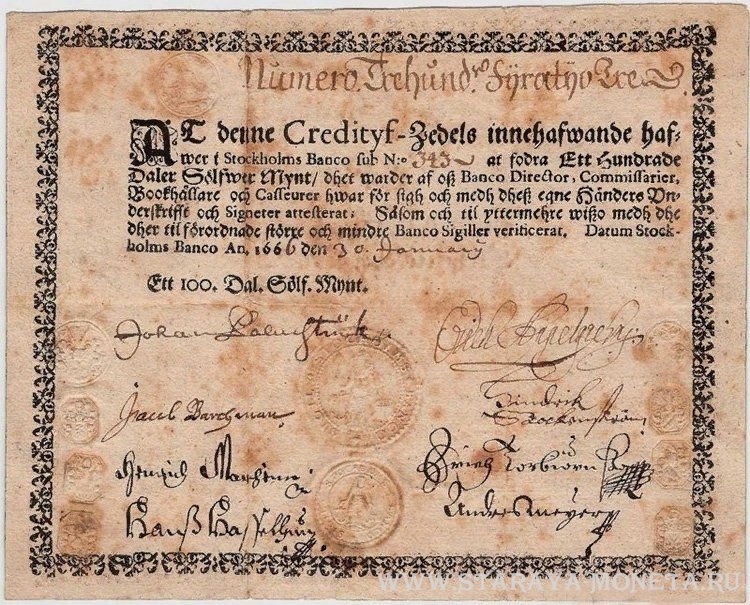 Numero. Trehund.ro Fyratyo Tre
AT denne Credityf-Zedels innehafwande haf-
wer i Stockholms Banco sub N:o 343 at fodra Ett Hundrade
Daler Sölfwer Mynt/ dhet warder af oß Banco Director, Commissarier,
Bookhållare och Casseurer hwar för sigh och medh dheß egne Händers Vn-
derskrifft och Signeter attesterat: Såsom och til yttermehre wißo medh dhe
dher til förordnade större och mindre Banco Sigiller verificerat. Datum Stock-
holms Banco An. 1666 den 30. January
Ett 100. Dal. Sölf. Mynt.
Johan Palmstruk
Jacob Barckman
Hindrik
Hans
Anders Meyer
WWW.STARAYA-MONETA.RU